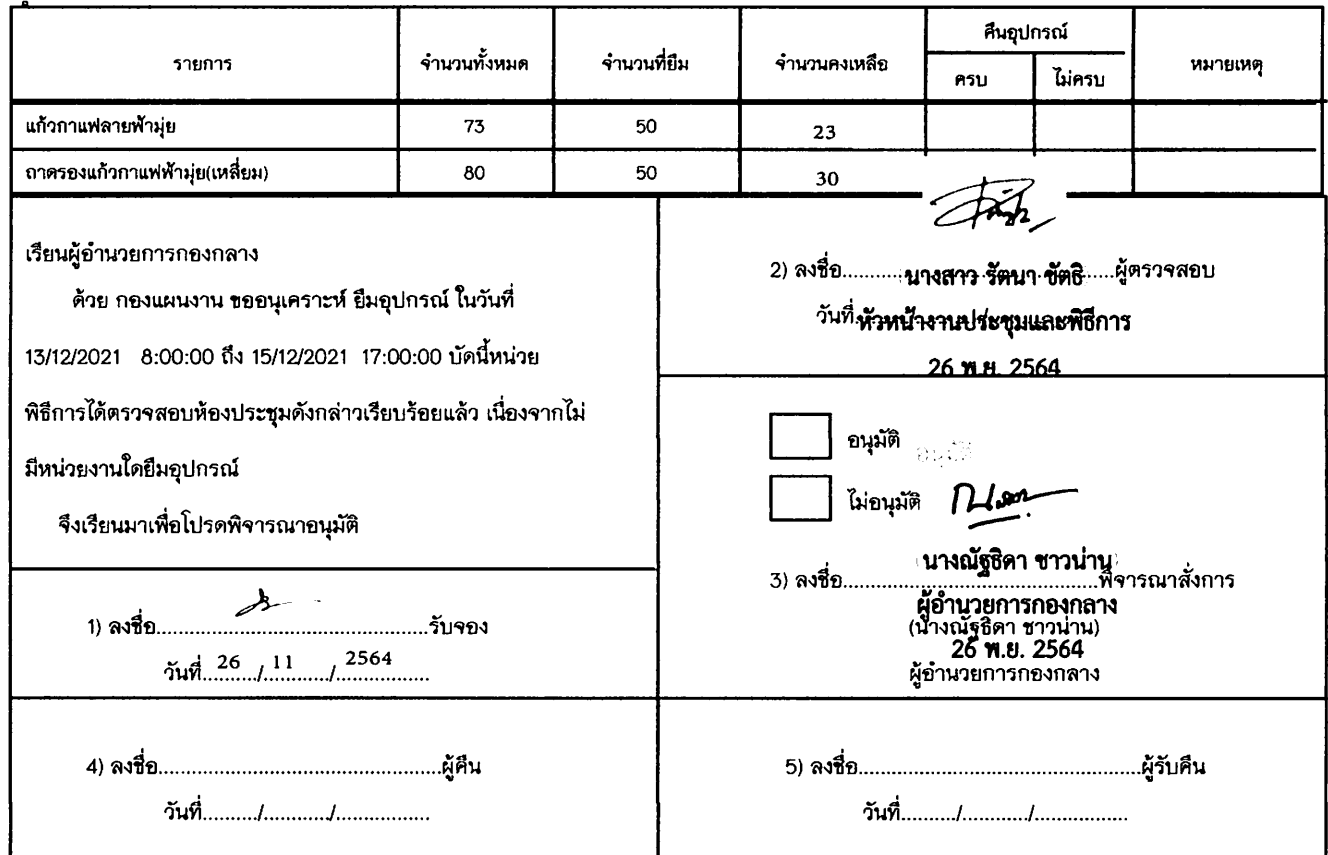 รายการ จำนวนทั้งหมด จำนวนที่ยืม จำนวนคงเหลือ คืนอุปกรณ์ หมายเหตุ
ครบ ไม่ครบ
แก้วกาแฟลายฟ้ามุ่ย 73 50 23
ถาดรองแก้วกาแฟฟ้ามุ่ย(เหลี่ยม) 80 50 30
เรียนผู้อำนวยการกองกลาง
ด้วย กองแผนงาน ขออนุเคราะห์ ยืมอุปกรณ์ ในวันที่
13/12/2021 8:00:00 ถึง 15/12/2021 17:00:00 บัดนี้หน่วย
พิธีการได้ตรวจสอบห้องประชุมดังกล่าวเรียบร้อยแล้ว เนื่องจากไม่
มีหน่วยงานใดยืมอุปกรณ์
จึงเรียนมาเพื่อโปรดพิจารณาอนุมัติ
1) ลงชื่อ..............................................รับจอง
วันที่ 26 / 11 / 2564
2) ลงชื่อ...........นางสาว รัตนา ขัตธิ.....ผู้ตรวจสอบ
วันที่ หัวหน้างานประชุมและพิธีการ
26 พ.ย. 2564
อนุมัติ อนุมัติ
ไม่อนุมัติ
นางณัฐธิดา ชาวน่าน
3) ลงชื่อ...........................................พิจารณาสั่งการ
ผู้อำนวยการกองกลาง
(นางณัฐธิดา ชาวน่าน)
26 พ.ย. 2564
ผู้อำนวยการกองกลาง
4) ลงชื่อ................................................ผู้คืน
วันที่........../............/................
5) ลงชื่อ................................................ผู้รับคืน
วันที่........../............/................